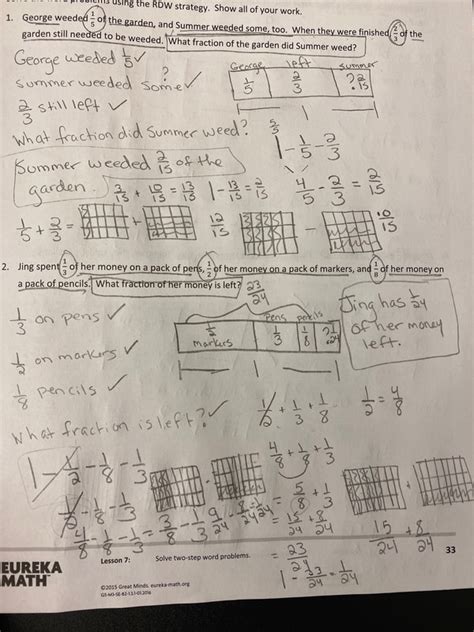 using the RDW strategy. Show all of your work.
1. George weeded 1/5 of the garden, and Summer weeded some, too. When they were finished, 2/3 of the
garden still needed to be weeded. What fraction of the garden did Summer weed?
George weeded 1/5 ✓
?
Summer weeded some ✓
2/3 still left ✓
George left summer
1/5 2/3 ? 2/15
1
What fraction did Summer weed?
1 - 1/5 - 2/3
Summer weeded 2/15 of the
garden.
2/15 + 10/15 = 13/15 1 - 13/15 = 2/15
4/5 - 2/3 = 2/15
1/5 + 2/3 = +
12/15 - 10/15
2. Jing spent 1/3 of her money on a pack of pens, 1/2 of her money on a pack of markers, and 1/8 of her money on
a pack of pencils. What fraction of her money is left?
23/24
1/3 on pens ✓
1/2 on markers ✓
1/8 pencils ✓
What fraction is left? ✓
pens pencils
1/2 markers 1/3 1/8 ? 1/24
1
Jing has 1/24
of her money
left.
1/2 + 1/3 + 1/8
1/2 = 4/8
4/8 + 1/8 + 1/3
5/8 + 1/3
15/24 + 8/24
= 23/24
1 - 23/24 = 1/24
1 - 1/2 - 1/8 - 1/3
1/2 - 1/8 - 1/3
4/8 - 1/8 - 1/3 = 3/8 - 1/3 = 9/24 - 8/24 = 1/24
15/24 + 8/24
EUREKA
MATH
Lesson 7: Solve two-step word problems.
33
©2015 Great Minds. eureka-math.org
G5-M3-SE-B2-1.3.1-01.2016